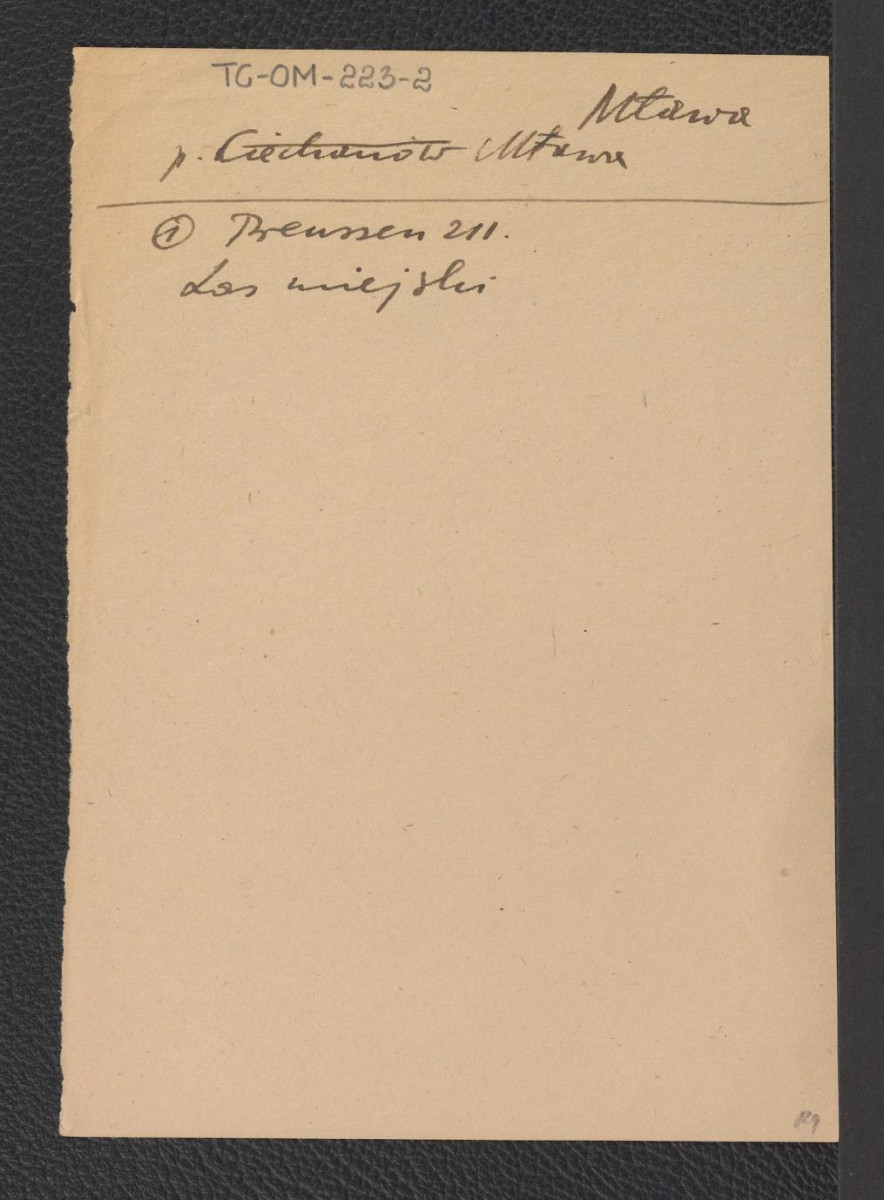 TG-OM-223-2
Mława
p. Ciechanów Mława
① Preussen 211.
Las miejski